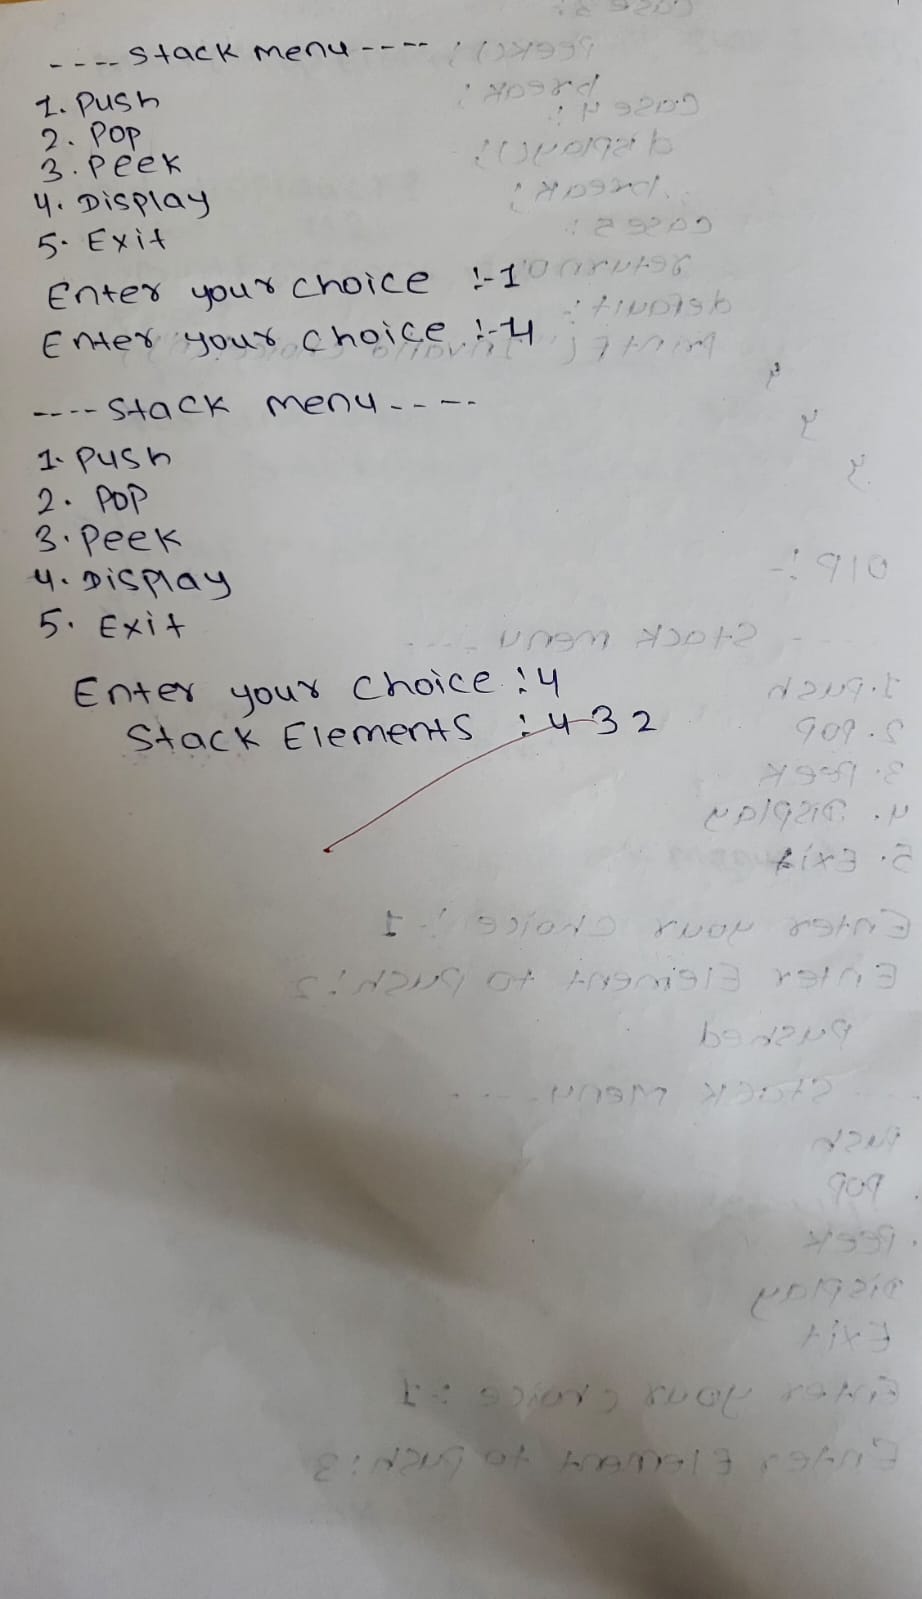 ---- Stack menu ----
1. Push
2. Pop
3. Peek
4. Display
5. Exit
Enter your choice :- 1
Enter your choice :- 4
---- Stack menu ----
1. Push
2. Pop
3. Peek
4. Display
5. Exit
Enter your choice : 4
Stack Elements : 4 3 2